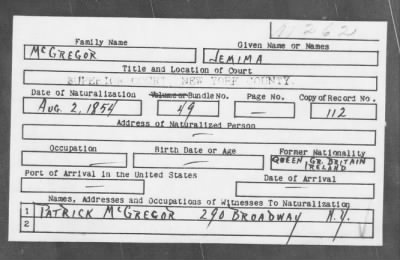 Family Name Given Name or Names
McGREGOR JEMIMA
Title and Location of Court
SUPERIOR COURT, NEW YORK COUNTY.
Date of Naturalization Volume or Bundle No. Page No. Copy of Record No.
AUG. 2, 1854 49 — 112
Address of Naturalized Person
—
Occupation Birth Date or Age Former Nationality
— — QUEEN, GR. BRITAIN
IRELAND
Port of Arrival in the United States Date of Arrival
— —
Names, Addresses and Occupations of Witnesses To Naturalization
1 PATRICK McGREGOR 290 BROADWAY N.Y.
2